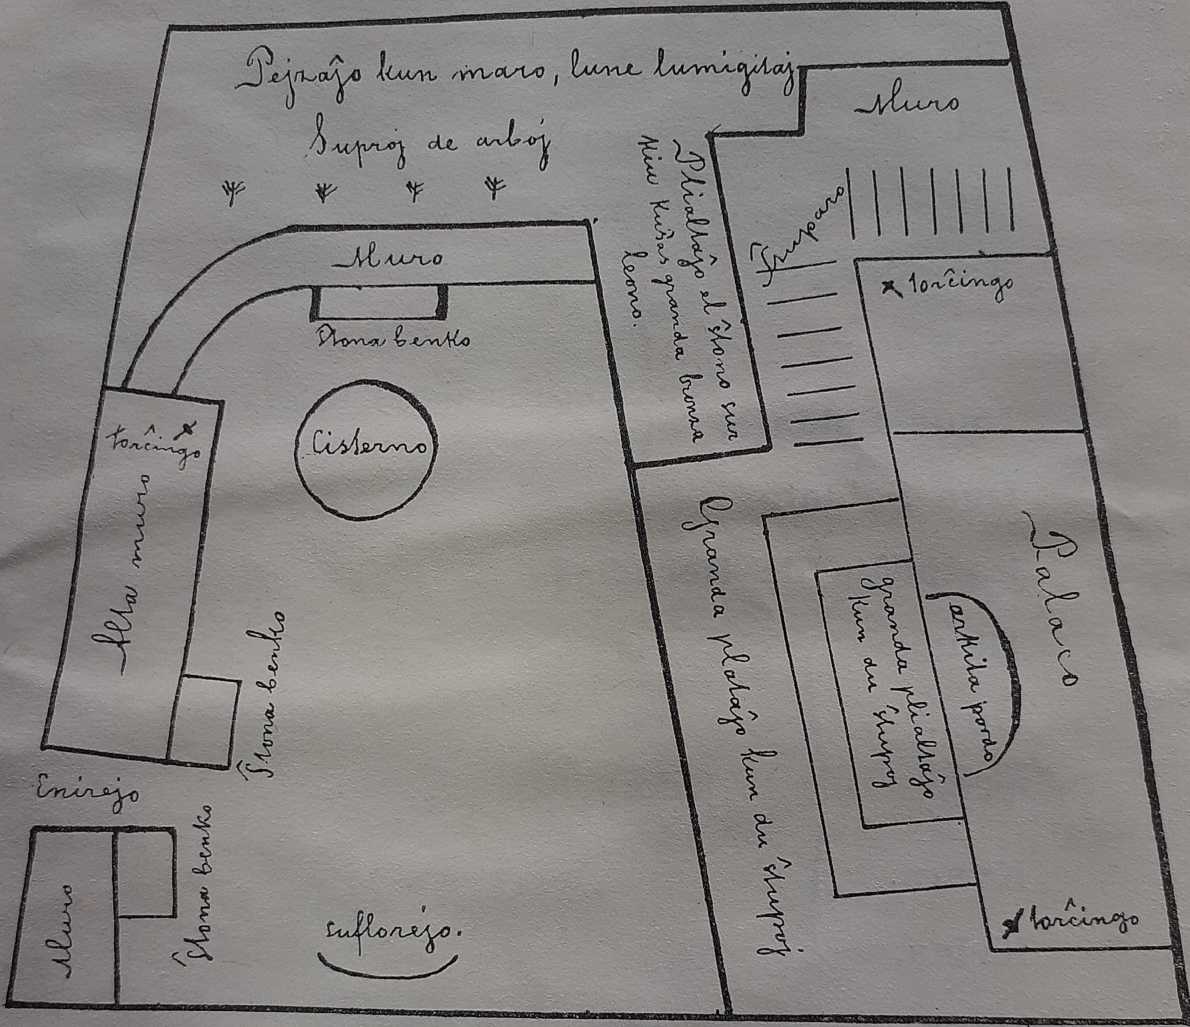 Pejzaĵo kun maro, lune lumigitaj
Suproj de arboj
Muro
Muro
Ŝtona benko
Plialtaĵo el ŝtono sur
kiu kuŝas granda bronza
leono.
torĉingo
torĉingo
Cisterno
Alta muro
Ŝtona benko
Granda plataĵo kun du ŝtupoj
granda plialtaĵo
kun du ŝtupoj
arkita pordo
Palaco
Enirejo
Muro
Ŝtona benko
suflorejo.
torĉingo